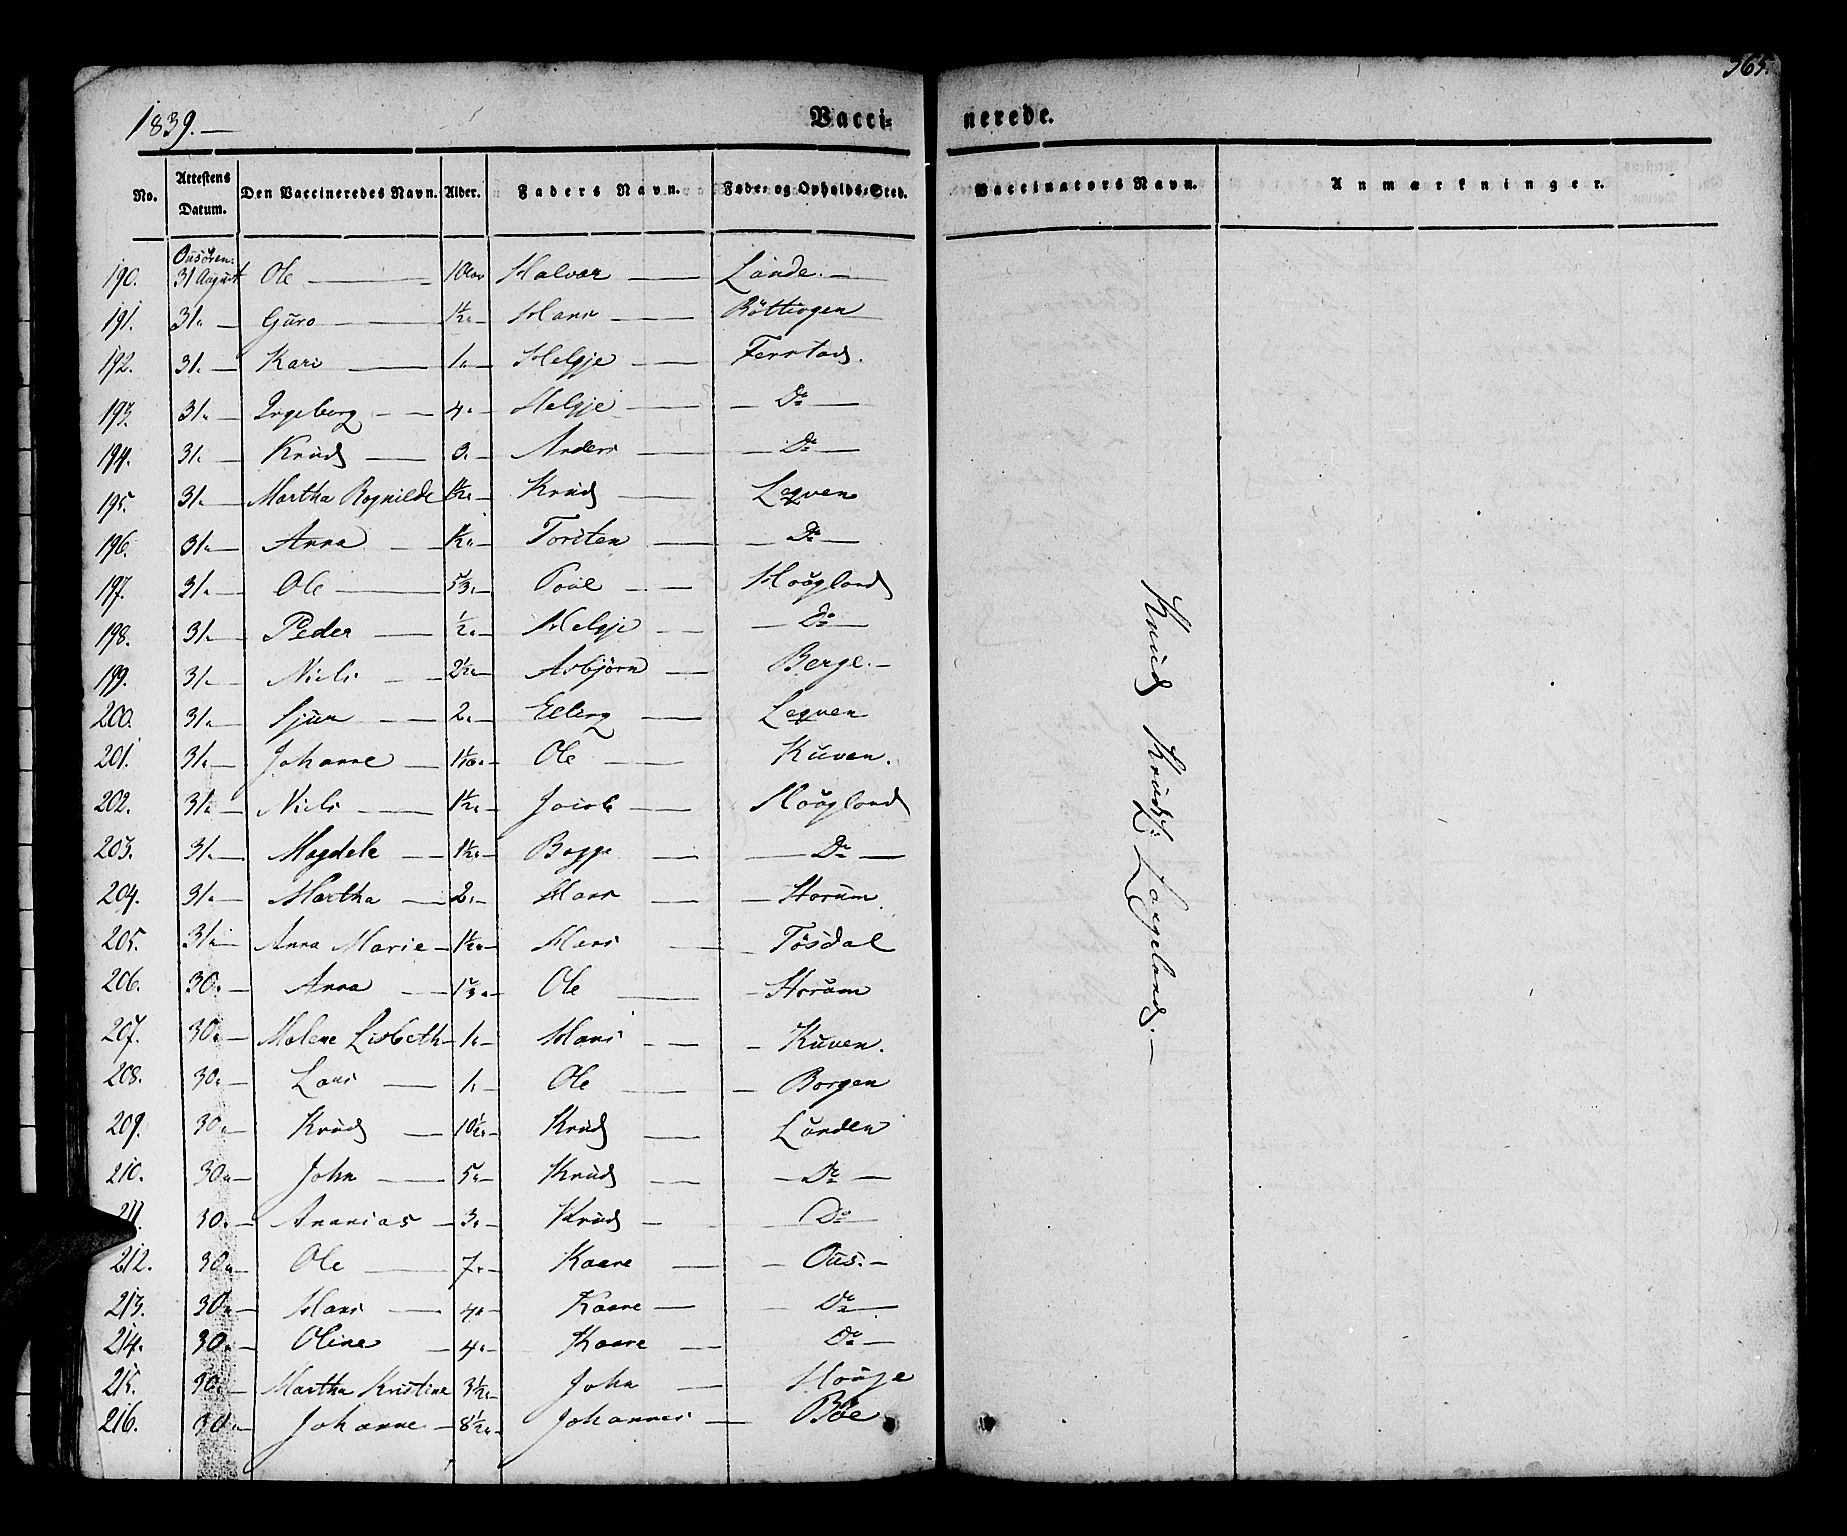 365.
1839.— Vacci- nerede.
No. Attestens Datum. Den Vaccineredes Navn. Alder. Faders Navn. Føde- og Opholds-Sted. Vaccinators Navn. Anmærkninger.
190. 31 August Ole — Halvor Lunde.—
191. 31 " — Guro — 1½ " — Hans — Röttingen
192. 31 " — Kari — 1 " — Helgje — Ferstad.
193. 31 " — Ingeborg — 4 " — Helgje — Do —
194. 31 " — Knud — 3 " — Anders — Do —
195. 31 " — Martha Rognilde 1½ " — Knud — Leqven
196. 31 " — Anna — ½ " — Torsten — Do —
197. 31 " — Ole — Poul — Hougland
198. 31 " — Peder — ½ " — Helgje — Do —
199. 31 " — Niels — 2½ " — Asbjørn — Berge.—
200. 31 " — Sjur — 2 " — Elling — Leqven
201. 31 " — Johanne — Ole — Kuven.
202. 31 " — Niels — 1½ " — Jacob — Hougland
203. 31 " — Magdele — 1½ " — Bagge — Do —
204. 31 " — Martha — 2 " — Hans — Horum
205. 31 " — Anna Marie — 1½ " — Hans — Tøsdal
206. 30 " — Anna — Ole — Horum
207. 30 " — Malene Lisbeth — 1 " — Hans — Kuven.
208. 30 " — Lars — 1 " — Ole — Borgen
209. 30 " — Knud — 10½ " — Knud — Lunden
210. 30 " — John — 5 " — Knud — Do —
211. 30 " — Ananias — 3 " — Knud — Do —
212. 30 " — Ole — 7 " — Kaare — Ous.—
213. 30 " — Hans — 4 " — Kaare — Do —
214. 30 " — Oline — 4 " — Kaare — Do —
215. 30 " — Martha Kristine 3½ " — John — Houge
216. 30 " — Johanne — 8½ " — Johannes — Böe
Knud Knuds: Langeland.—